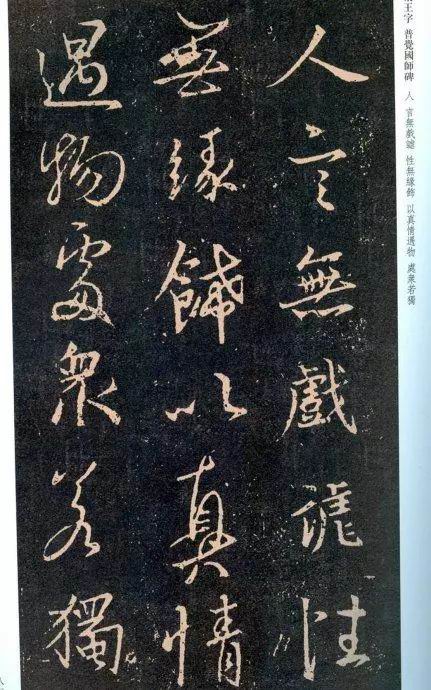 王字 普覺國師碑 人 言無戲謔 性無緣飾 以真情遇物 處衆若獨
人言無戲謔性
無緣餝以真情
遇物處衆若獨